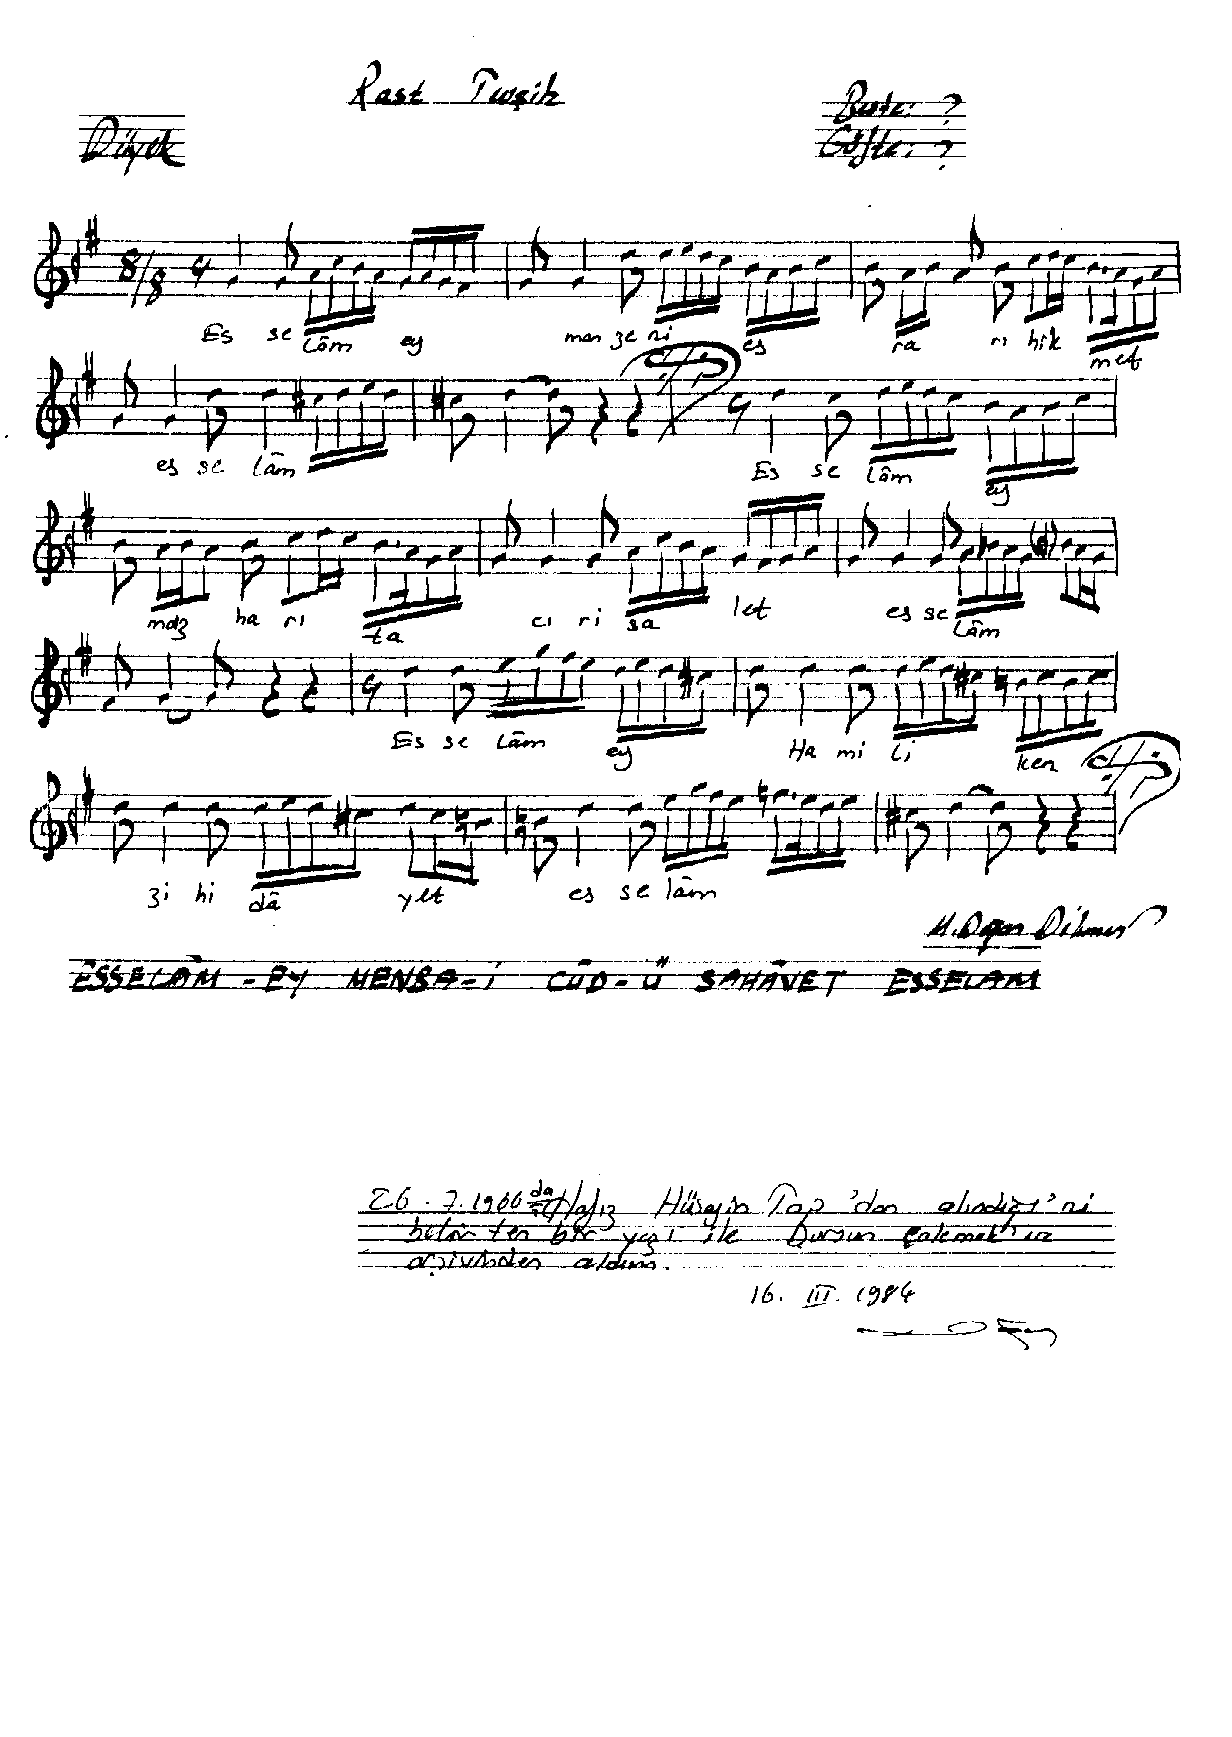 Rast Tevşih
Beste: ?
Düyek
Güfte: ?
8/8
Es se lâm ey man ze ri es ra rı hik met
es se lâm Es se lâm ey
maz ha ri ta cı ri sa let es se lâm
Es se lâm ey Ha mi li ken
zi hi dâ yet es se lâm
ESSELÂM - EY MENBA-İ CÛD-Ü SAHÂVET ESSELAM
26.7.1966 da Hafız Hüseyin Top'dan alındığı'nı
belirten bir yazı ile Dursun Çakmak'ın
arşivinden aldım.
16. III. 1984